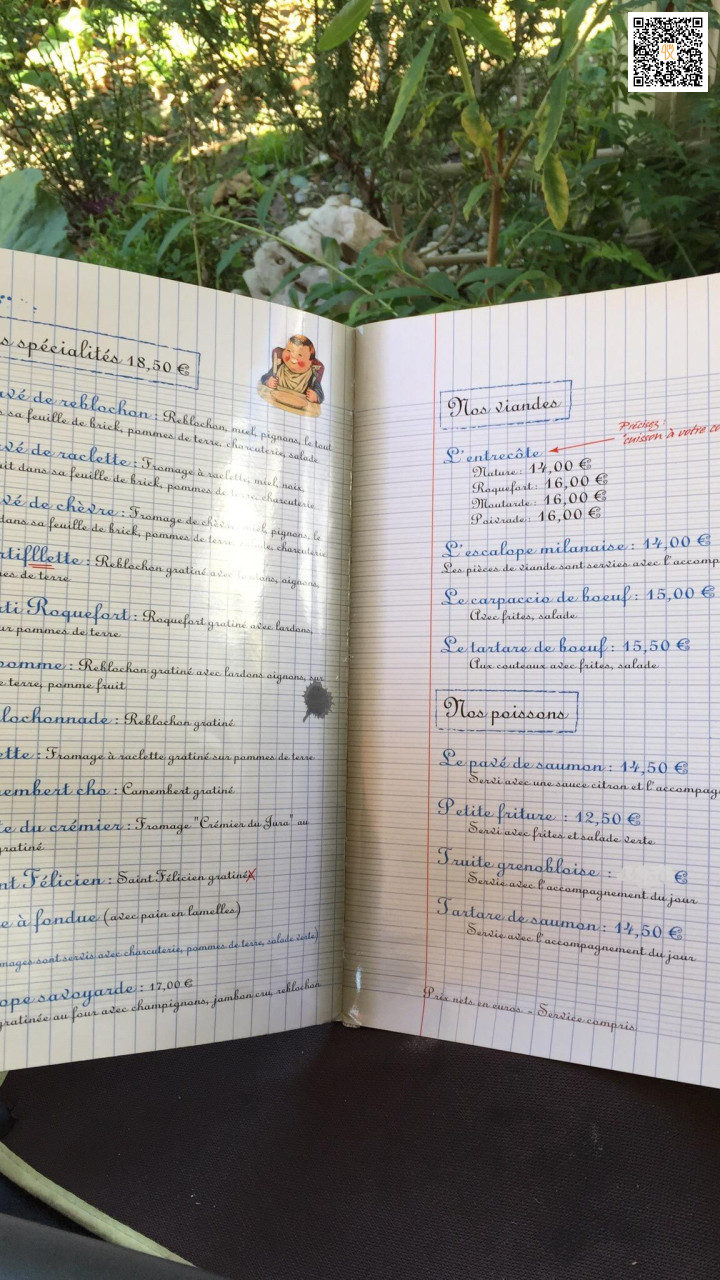 s spécialités 18,50 €
avé de reblochon : Reblochon, miel, pignons, le tout
s sa feuille de brick, pommes de terre, charcuterie, salade
avé de raclette : Fromage à raclette, miel, noix,
uit dans sa feuille de brick, pommes de terre, charcuterie
avé de chèvre : Fromage de chèvre, miel, pignons, le
dans sa feuille de brick, pommes de terre, salade, charcuterie
rtifllette : Reblochon gratiné avec lardons, oignons,
mes de terre
rti Roquefort : Roquefort gratiné avec lardons,
ur pommes de terre
pomme : Reblochon gratiné avec lardons oignons, sur
e terre, pomme fruit
lochonnade : Reblochon gratiné
ette : Fromage à raclette gratiné sur pommes de terre
membert cho : Camembert gratiné
te du crémier : Fromage "Crémier du Jura" au
gratiné
nt Félicien : Saint Félicien gratiné
e à fondue (avec pain en lamelles)
mages sont servis avec charcuterie, pommes de terre, salade verte)
ope savoyarde : 17,00 €
gratinée au four avec champignons, jambon cru, reblochon
Nos viandes
Précisez :
cuisson à votre co
L'entrecôte
Nature : 14,00 €
Roquefort : 16,00 €
Moutarde : 16,00 €
Poivrade : 16,00 €
L'escalope milanaise : 14,00 €
Les pièces de viande sont servies avec l'accomp
Le carpaccio de boeuf : 15,00 €
Avec frites, salade
Le tartare de boeuf : 15,50 €
Aux couteaux avec frites, salade
Nos poissons
Le pavé de saumon : 14,50 €
Servi avec une sauce citron et l'accompag
Petite friture : 12,50 €
Servi avec frites et salade verte
Truite grenobloise : €
Servie avec l'accompagnement du jour
Tartare de saumon : 14,50 €
Servie avec l'accompagnement du jour
Prix nets en euros - Service compris